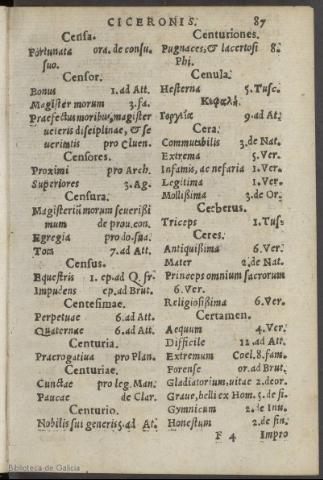 CICERONIS. 87
Censa.
Fortunata ora. de consu.
suo.
Censor.
Bonus 1. ad Att.
Magister morum 3. fa.
Praefectus moribus, magister
veteris disciplinae, & se
veritatis pro Cluen.
Censores.
Proximi pro Arch.
Superiores 3. Ag.
Censura.
Magisteriũ morum severißi
mum de prou. con.
Egregia pro do. sua.
Tota 7. ad Att.
Census.
Equestris 1. ep. ad Q. fr.
Impudens ep. ad Brut.
Centesimae.
Perpetuae 6. ad Att.
Quaternae 6. ad Att.
Centuria.
Praerogatiua pro Plan.
Centuriae.
Cunctae pro leg. Man.
Paucae de Clar.
Centurio.
Nobilis sui generis 5. ad At.
Centuriones.
Pugnaces, & lacertosi 8.
Phi.
Cenula.
Hesterna 5. Tusc.
Κεφαλή.
9. ad At.
Cera.
Commutabilis 3. de Nat.
Extrema 5. Ver.
Infamis, ac nefaria 1. Ver.
Legitima 1. Ver.
Mollißima 3. de Or.
Cerberus.
Triceps 1. Tus.
Ceres.
Antiquißima 6. Ver.
Mater 2. de Nat.
Princeps omnium sacrorum
6. Ver.
Religiosißima 6. Ver.
Certamen.
Aequum 4. Ver.
Difficile 12. ad Att.
Extremum Coel. 8. fam.
Forense or. ad Brut.
Gladiatorium, uitae 2. de or.
Graue, belli ex Hom. 5. de fi.
Gymnicum 2. de Inu.
Honestum 2. de fin.
F 4 Impro
Biblioteca de Galicia